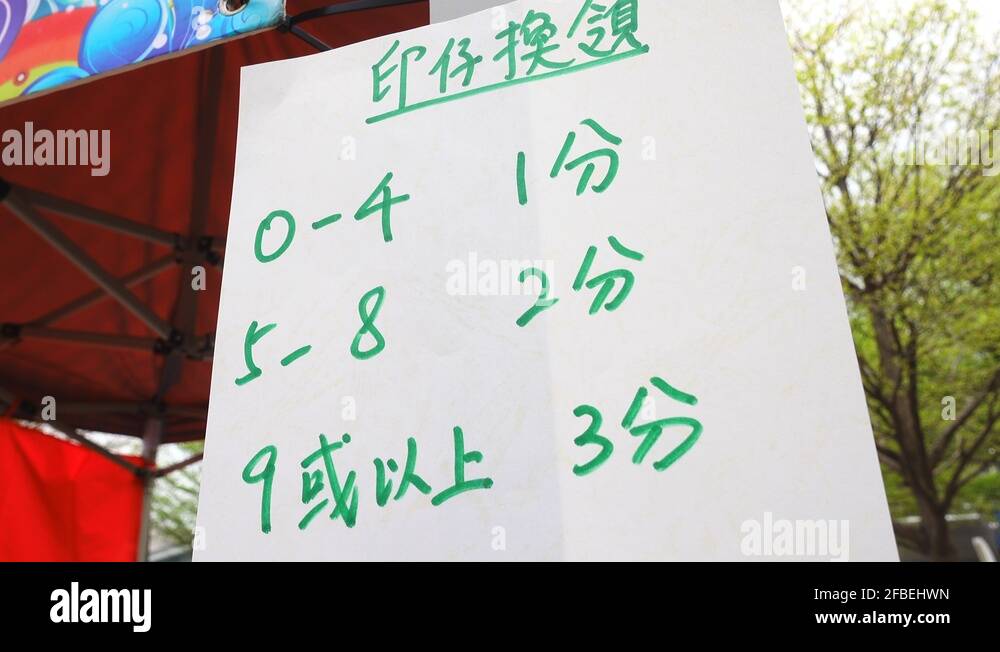 印仔換領
0-4 1分
5-8 2分
9或以上 3分
alamy
alamy
alamy
alamy
Image ID: 2FBEHWN
www.alamy.com